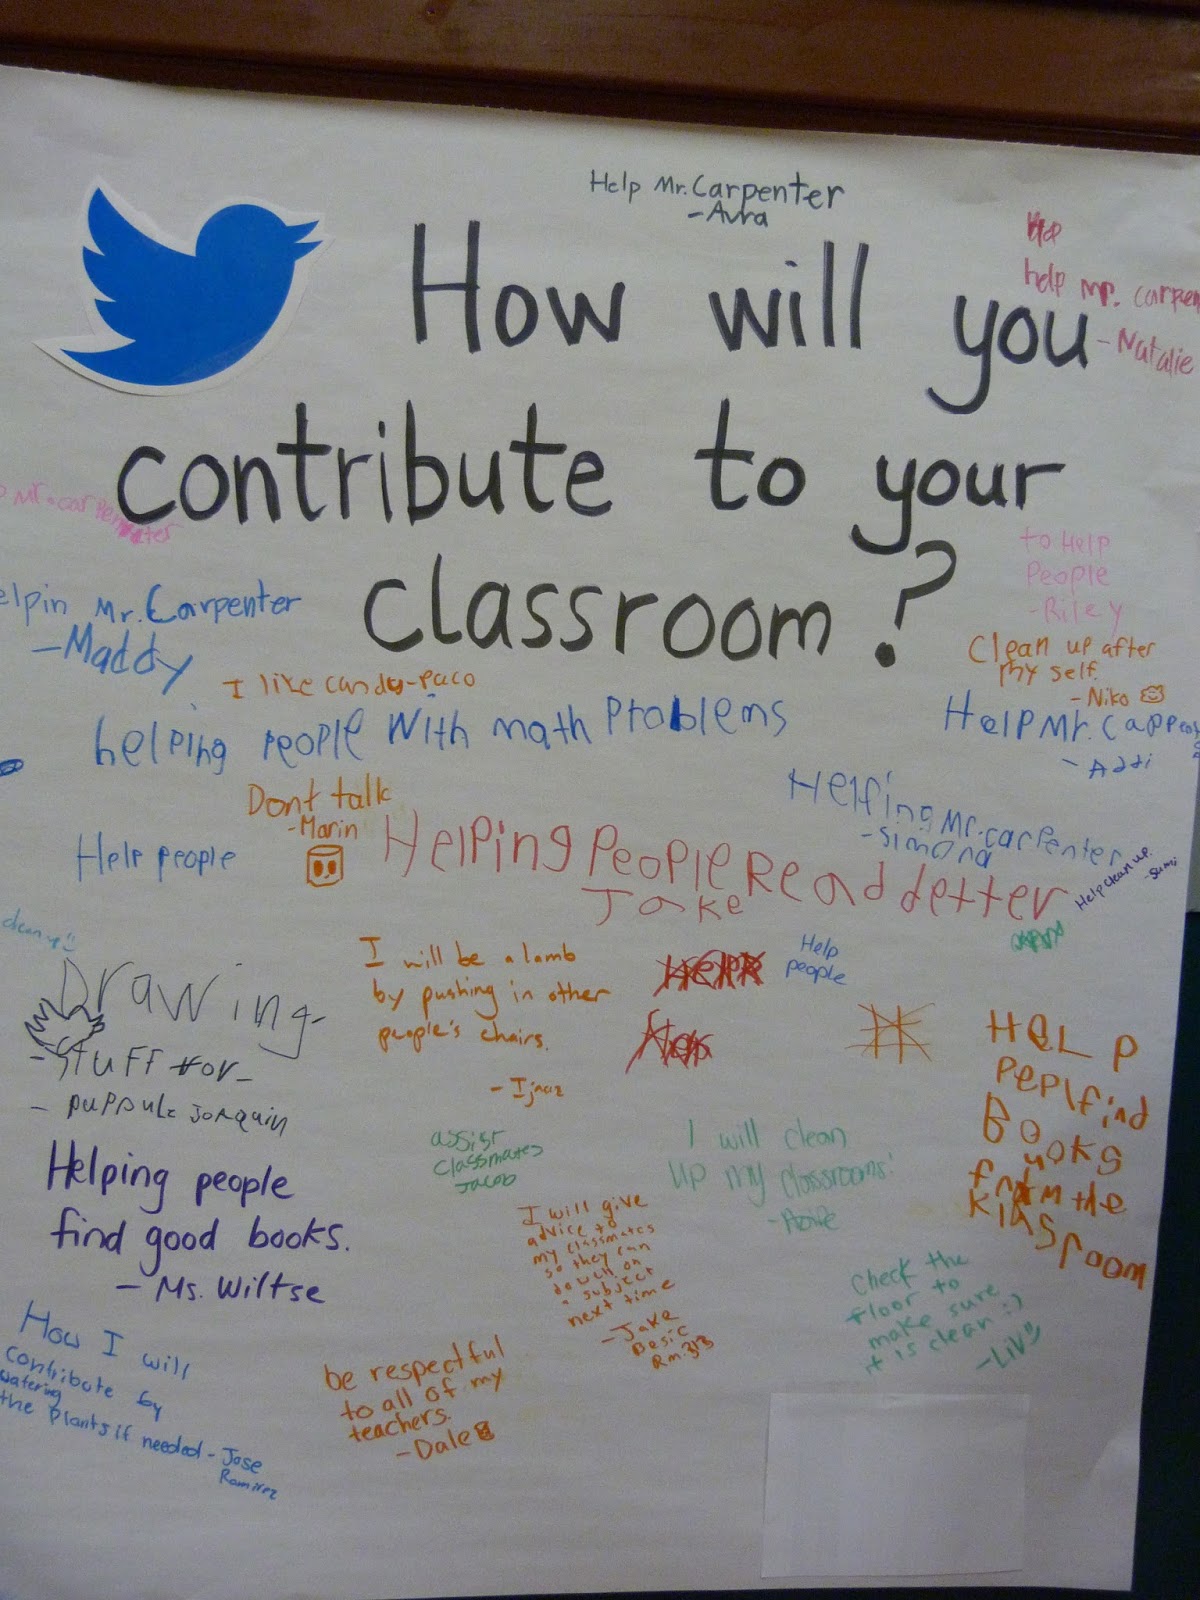 Help Mr. Carpenter
- Avra
help Mr. Carpen
- Natalie
How will you
contribute to your
classroom?
Mr. Carpenter
elpin Mr. Carpenter
- Maddy
to Help
People
- Riley
Clean up after
my self.
- Niko
I like candy - Paco
helping people with math problems
Help Mr. Carpen
- Addi
Dont talk
- Marin
Helfing Mr. Carpenter
- Simona
Help people
Helping People Read detter
Jake
Help clean up.
clean up
Drawing
- Stuff for -
I will be a lamb
by pushing in other
people's chairs.
Help
people
HELP
pepl find
Books
the
klasroom
Helping people
find good books.
- Ms. Wiltse
assist
classmates
Jacob
I will clean
up my classrooms!
I will give
advice to
my classmates
so they can
do well on
a subject
next time
- Jake
Besic
Rm. 313
Check the
floor to
make sure
it is clean :)
- Liv
How I will
contribute by
watering
the plants if needed - Jose
Ramirez
be respectful
to all of my
teachers.
- Dale